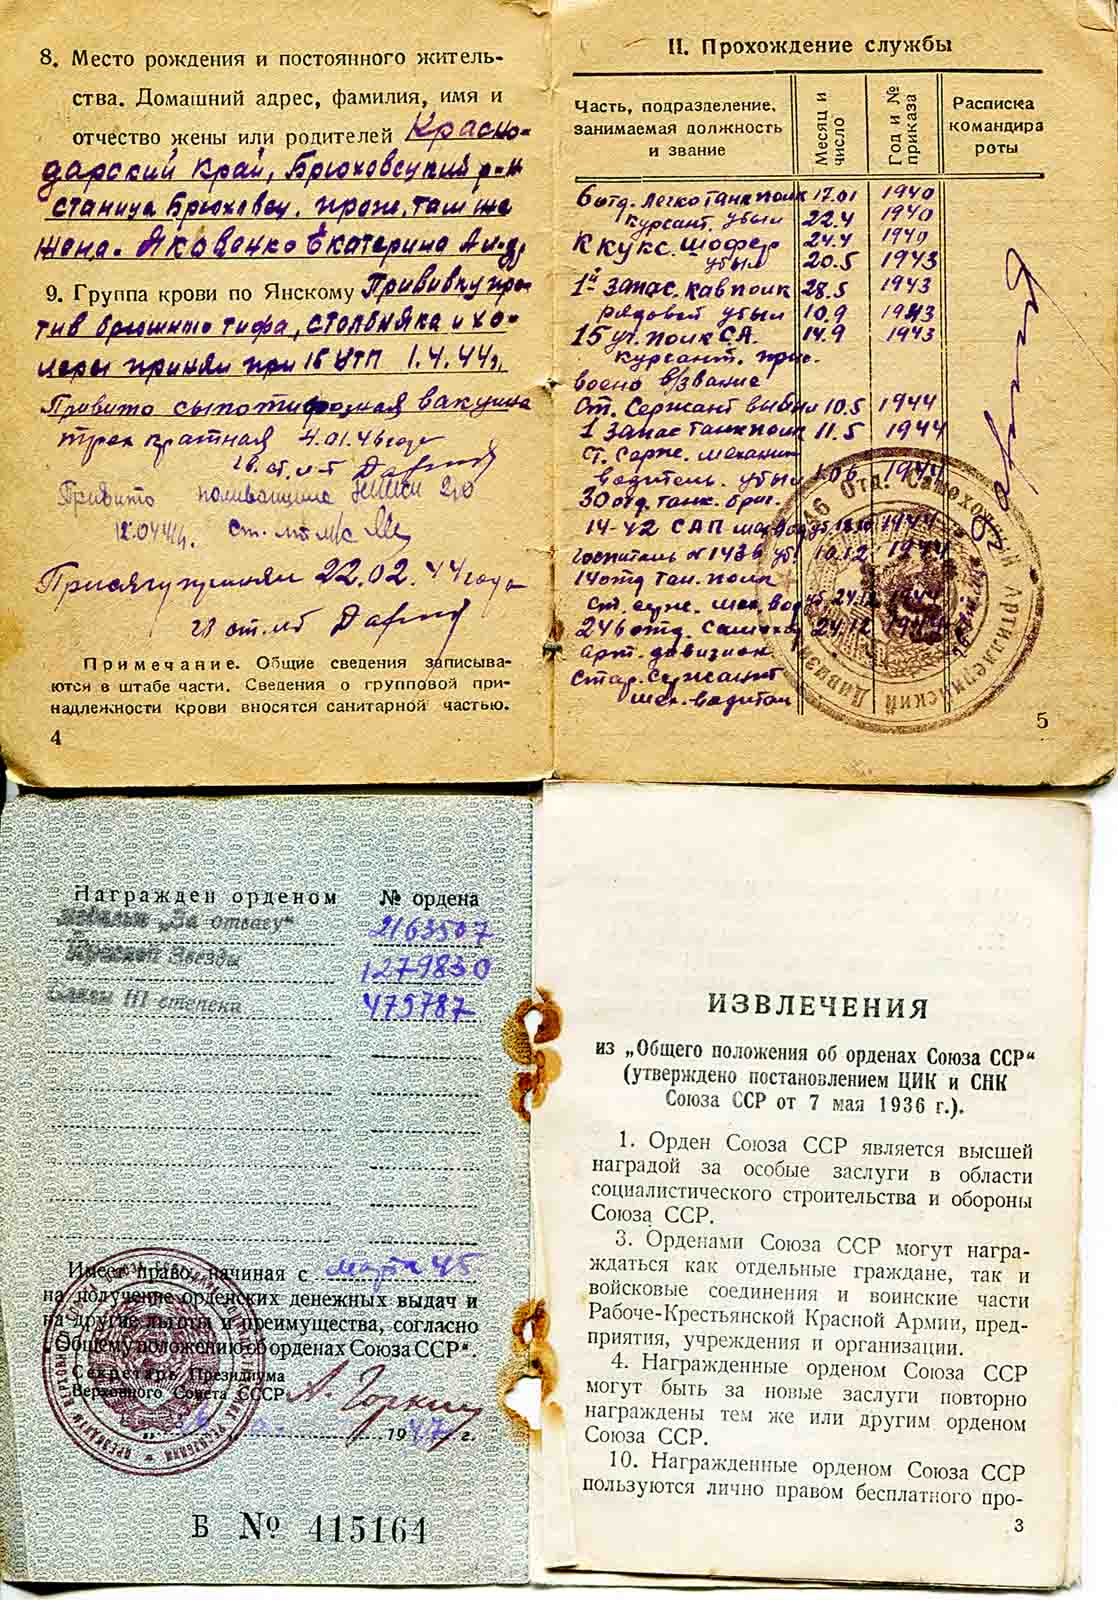 8. Место рождения и постоянного житель-
ства. Домашний адрес, фамилия, имя и
отчество жены или родителей Красно-
дарский край, Брюховецкий р-н
станица Брюховец. прож. там же
жена. Яковенко Екатерина
9. Группа крови по Янскому Прививку про-
тив брюшного тифа, столбняка и хо-
леры принял при 15 УТП 1.4.44г.
Привито сыпотифозная вакцина
трех кратная 4.01.46 года
Привито
12.04.44г.
Присягу принял 22.02.44 года
Примечание. Общие сведения записыва-
ются в штабе части. Сведения о групповой при-
надлежности крови вносятся санитарной частью.
4
II. Прохождение службы
Часть, подразделение, занимаемая должность и звание
Месяц и число
Год и № приказа
Расписка командира роты
6 отд. легко танк полк 17.01 1940
курсант. убыл 22.4 1940
ККУКС. шофер 24.4 1940
убыл 20.5 1943
1й запас. кав полк 28.5 1943
рядовой убыл 10.9 1943
15 уч. полк СА. 14.9 1943
курсант. прис.
военo в/звание
Ст. Сержант выбыл 10.5 1944
1 запас танк полк 11.5 1944
ст. серж. механик
водитель. убыл 1.06 1944
30 отд. танк. бриг.
14-42 САП 1944
госпиталь № 1436 уб. 10.12 1944
14 отд тан. полк
ст. серж. мех. вод уб 24.12 1944
246 отд. самоход 24.12 1944
арт. дивизион
стар. сержант
мех-водитель
246 Отд. Самоходный Артиллерийский Дивизион
5
Награжден орденом № ордена
медалью „За отвагу“ 2163507
Красной Звезды 1279830
Славы III степени 475787
Имеет право, начиная с марта 45
на получение орденских денежных выдач и
на другие льготы и преимущества, согласно
„Общему положению об орденах Союза ССР“.
Секретарь Президиума
Верховного Совета СССР А. Горкин
1947 г.
Б № 415164
ИЗВЛЕЧЕНИЯ
из „Общего положения об орденах Союза ССР“
(утверждено постановлением ЦИК и СНК
Союза ССР от 7 мая 1936 г.).
1. Орден Союза ССР является высшей
наградой за особые заслуги в области
социалистического строительства и обороны
Союза ССР.
3. Орденами Союза ССР могут награ-
ждаться как отдельные граждане, так и
войсковые соединения и воинские части
Рабоче-Крестьянской Красной Армии, пред-
приятия, учреждения и организации.
4. Награжденные орденом Союза ССР
могут быть за новые заслуги повторно
награждены тем же или другим орденом
Союза ССР.
10. Награжденные орденом Союза ССР
пользуются лично правом бесплатного про-
3